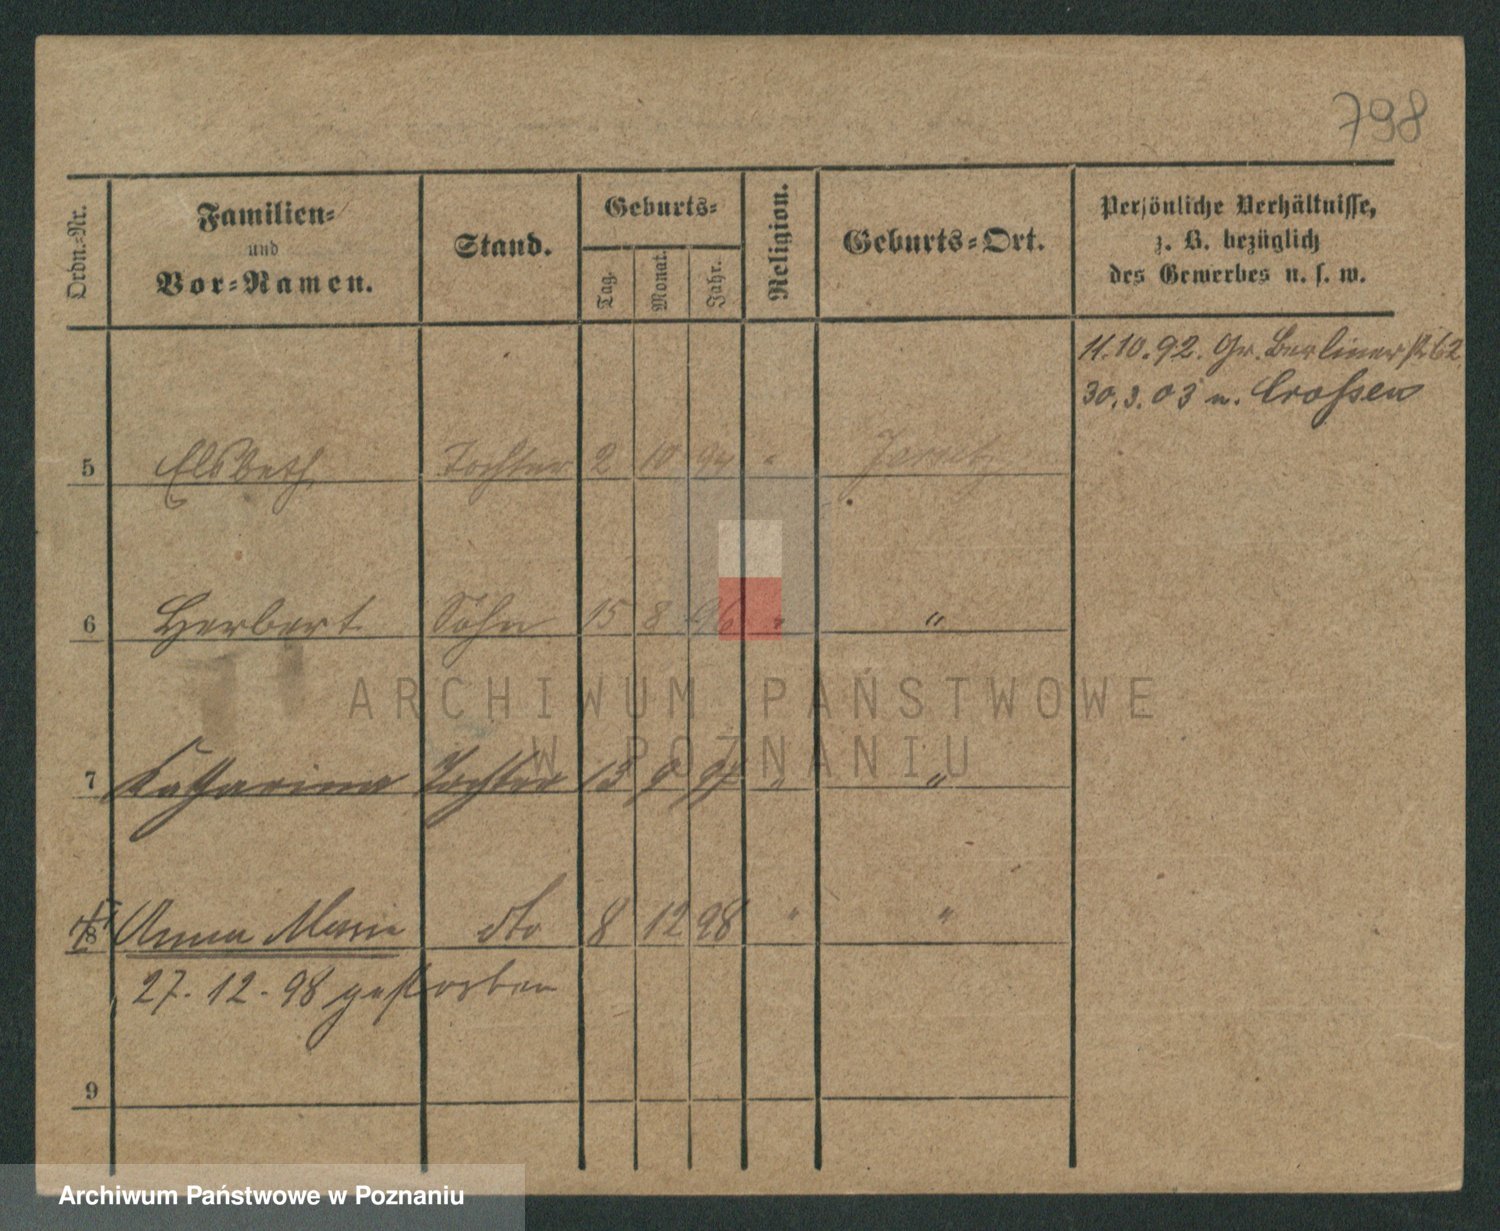 798
Ordn.-Nr.
Familien-
und
Vor-Namen.
Stand.
Geburts-
Tag.
Monat.
Jahr.
Religion.
Geburts-Ort.
Persönliche Verhältnisse,
z. B. bezüglich
des Gewerbes u. s. w.
11.10.92. Gr. Berlinerstr 62
30.3.03 n. Crossen
5 Elsbeth Tochter 2 10 94 " Jersitz
6 Herbert Sohn 15 8 96 " "
ARCHIWUM PAŃSTWOWE
W POZNANIU
7 Katharina Tochter 13 9 97 " "
8 Anna Marie dto 8 12 98 " "
27. 12. 98 gestorben
9
Archiwum Państwowe w Poznaniu